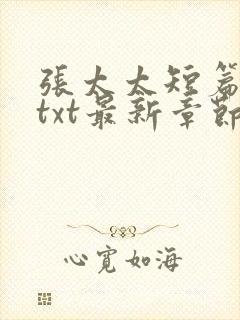 張太太短篇
txt最新章節
心寬如海